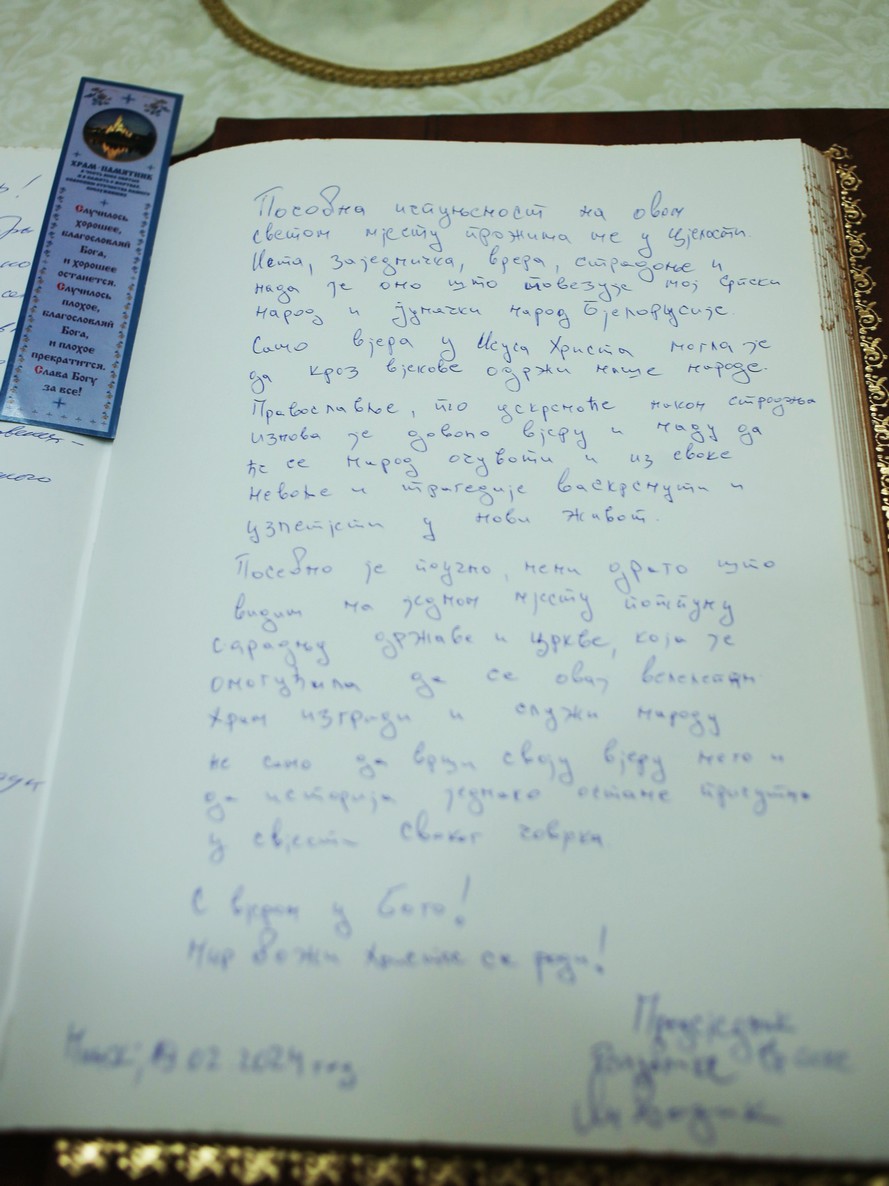 ХРАМ-ПАМЯТНИК
В ЧЕСТЬ ВСЕХ СВЯТЫХ
И В ПАМЯТЬ О ЖЕРТВАХ,
Случилось
хорошее,
благословляй
Бога,
и хорошее
останется.
Случилось
плохое,
благословляй
Бога,
и плохое
прекратится.
Слава Богу
за все!
Посебна испуњеност на овом
светом мјесту прожима ме у цјелости.
Иста, заједничка, вјера, страдање и
нада је оно што повезује мој српски
народ и јуначки народ Бјелорусије.
Само вјера у Исуса Христа могла је
да кроз вјекове одржи наше народе.
Православље, то ускрснуће након страдања
изнова је давало вјеру и наду да
ће се народ очувати и из сваке
невоље и трагедије васкрснути и
узлетјети у нови живот.
Посебно је поучно, мени драго што
видим на једном мјесту потпуну
сарадњу државе и цркве, која је
омогућила да се овај велелепни
храм изгради и служи народу
не само да врши своју вјеру него и
да историја једнако остане присутна
у свјести сваког човјека
С вјером у Бога!
Мир Божи Христос се роди!
Минск, 02 2024 год
Предсједник
Републике Српске
Додик